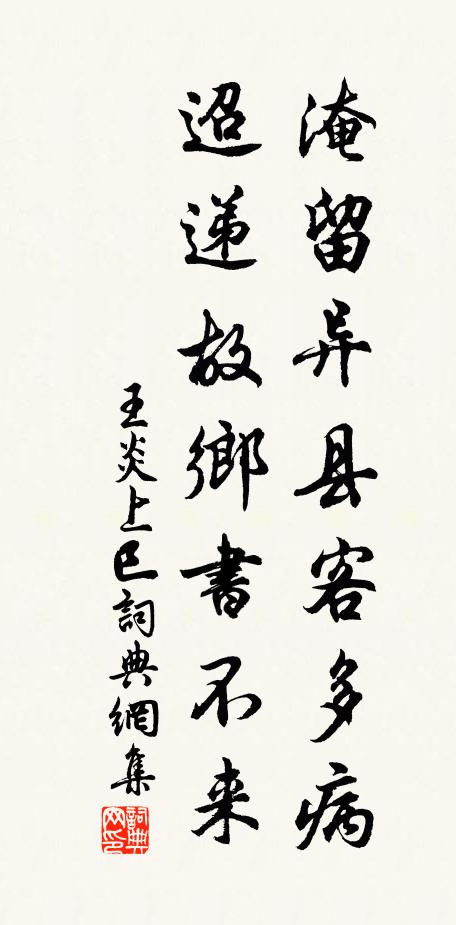 淹留异县客多病
迢递故鄉書不来
王炎上巳詞典網集
詞典网印